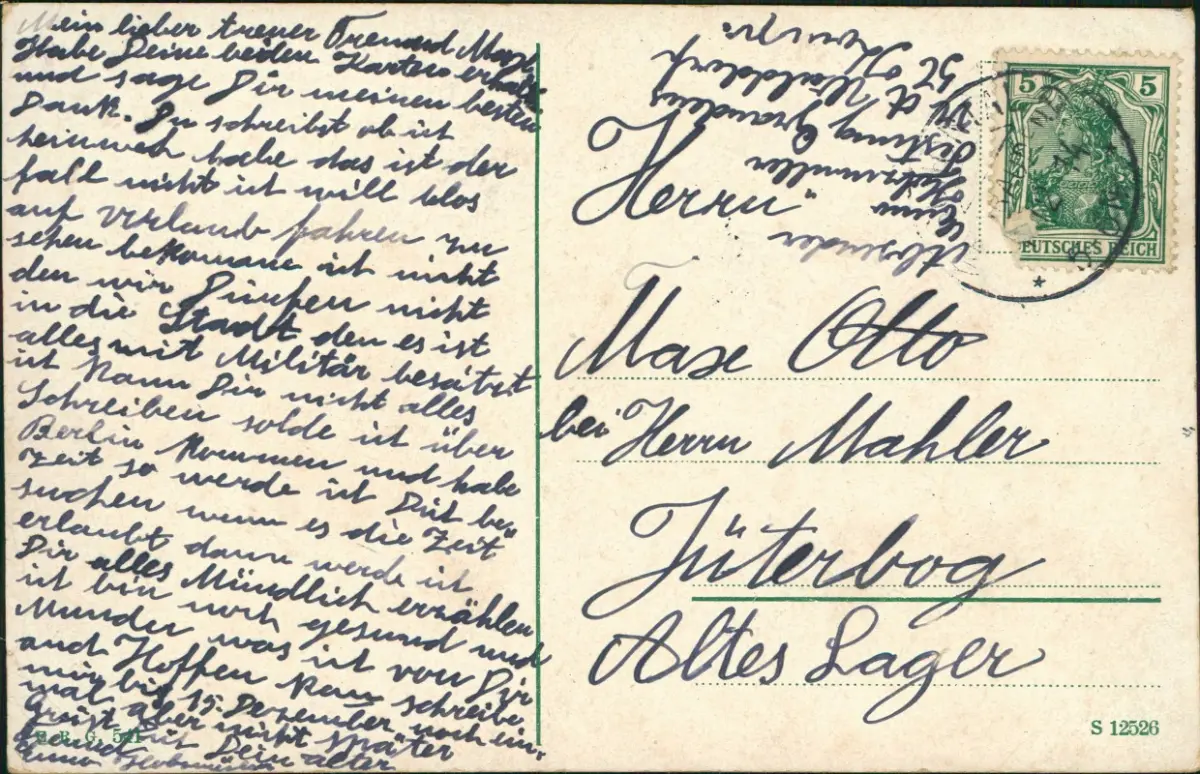 Mein lieber treuer Freund Max
Habe Deine beiden Karten erhalten
und sage Dir meinen besten
Dank. Du schreibst ob ich
heimweh habe das ist der
fall nicht ich will blos
auf verlaub fahren zu
sehen bekomme ich nicht
den wir Dürfen nicht
in die Stadt den es ist
alles mit Militär besätzt
ich kann Dir nicht alles
Schreiben solde ich über
Berlin kommen und habe
Zeit so werde ich Dich be"
suchen wenn es die Zeit
erlaubt dann werde ich
Dir alles Mündlich erzählen
ich bin noch gesund und
Munder was ich von Dir
auch Hoffen kann schreibe
mir bis 15. Dezember noch ein"
mal aber nicht später
Greist Dich Dein alter
Freund
Absender
Festung Graudenz
Herrn
Max Otto
bei Herrn Mahler
Jüterbog
Altes Lager
5 5
DEUTSCHES REICH
S 12526